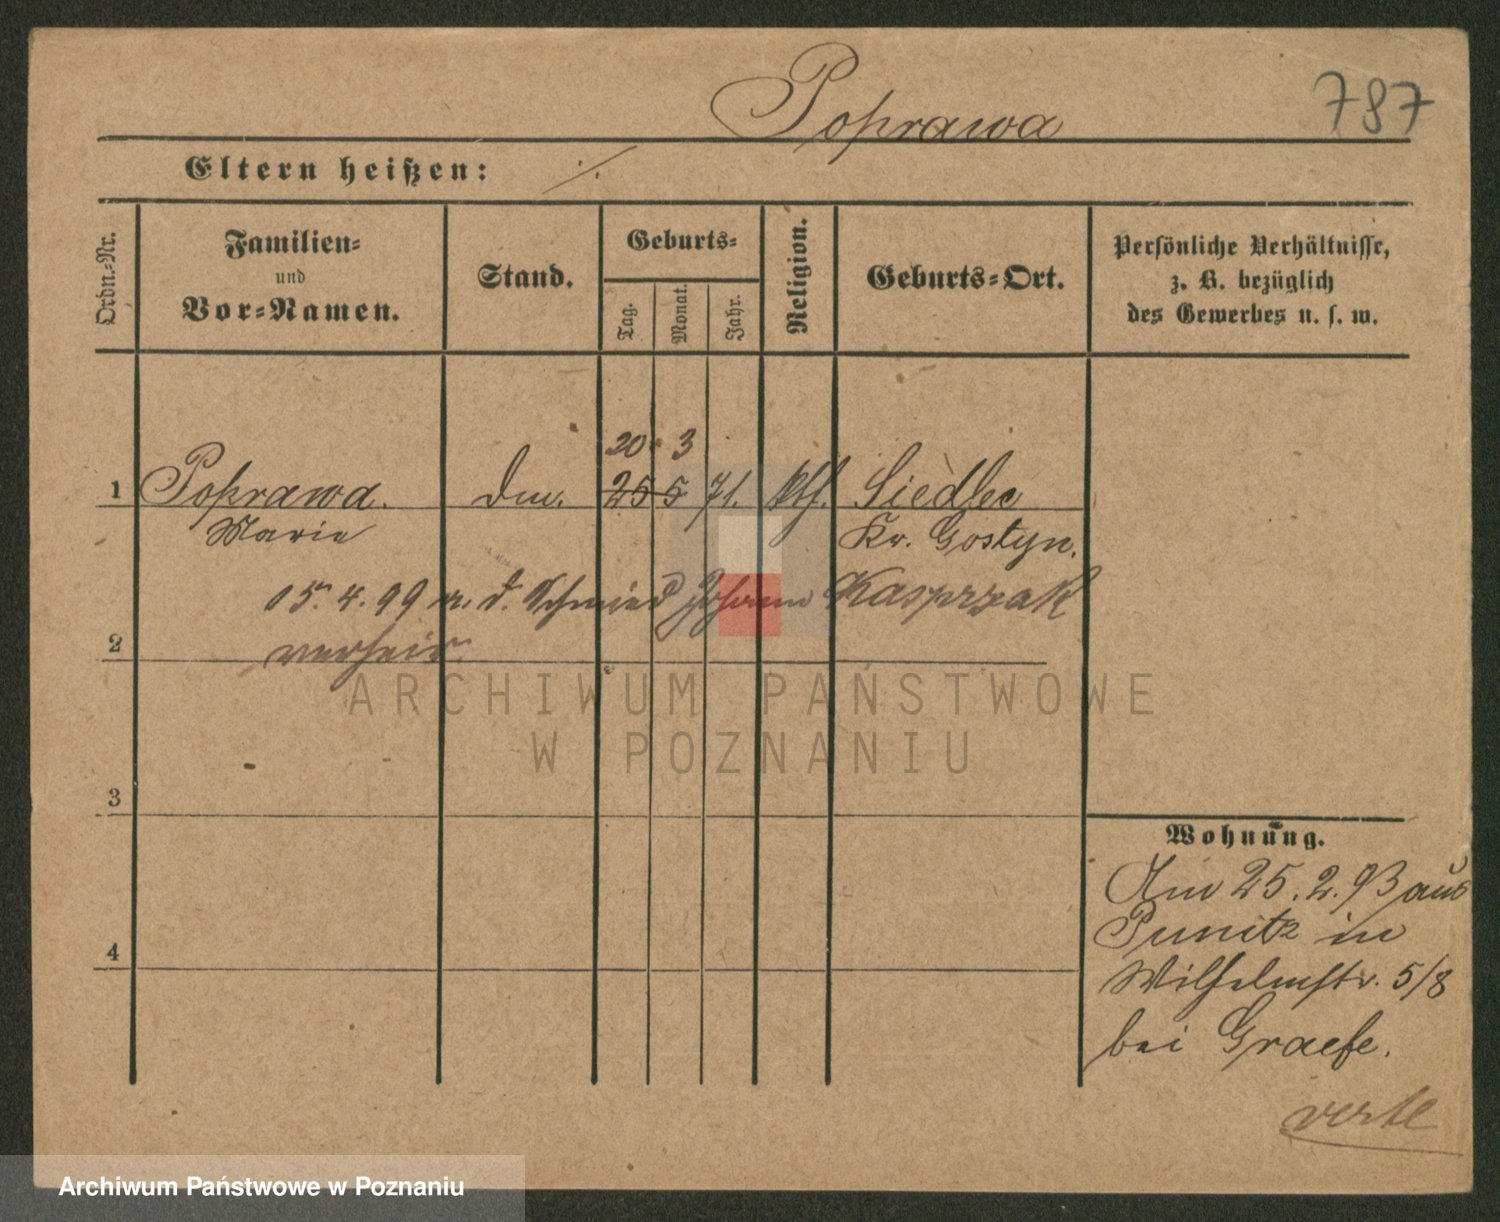 Poprawa
787
Eltern heißen: ./.
Ordn.-Nr.
Familien-
und
Vor-Namen.
Stand.
Geburts-
Tag.
Monat.
Jahr.
Religion.
Geburts-Ort.
Persönliche Verhältnisse,
z. B. bezüglich
des Gewerbes u. s. w.
20. 3
1 Poprawa. 25 5 71. kth. Siedlec
Marie Kr. Gostyn.
15. 4. 99 m. d. Schmied Johann Kasprzak
2 verheir.
ARCHIWUM PAŃSTWOWE
W POZNANIU
3
4
Wohnung.
Am 25. 2. 93 aus
Punitz in
Wilhelmstr. 5/8
bei Graefe.
verte
Archiwum Państwowe w Poznaniu